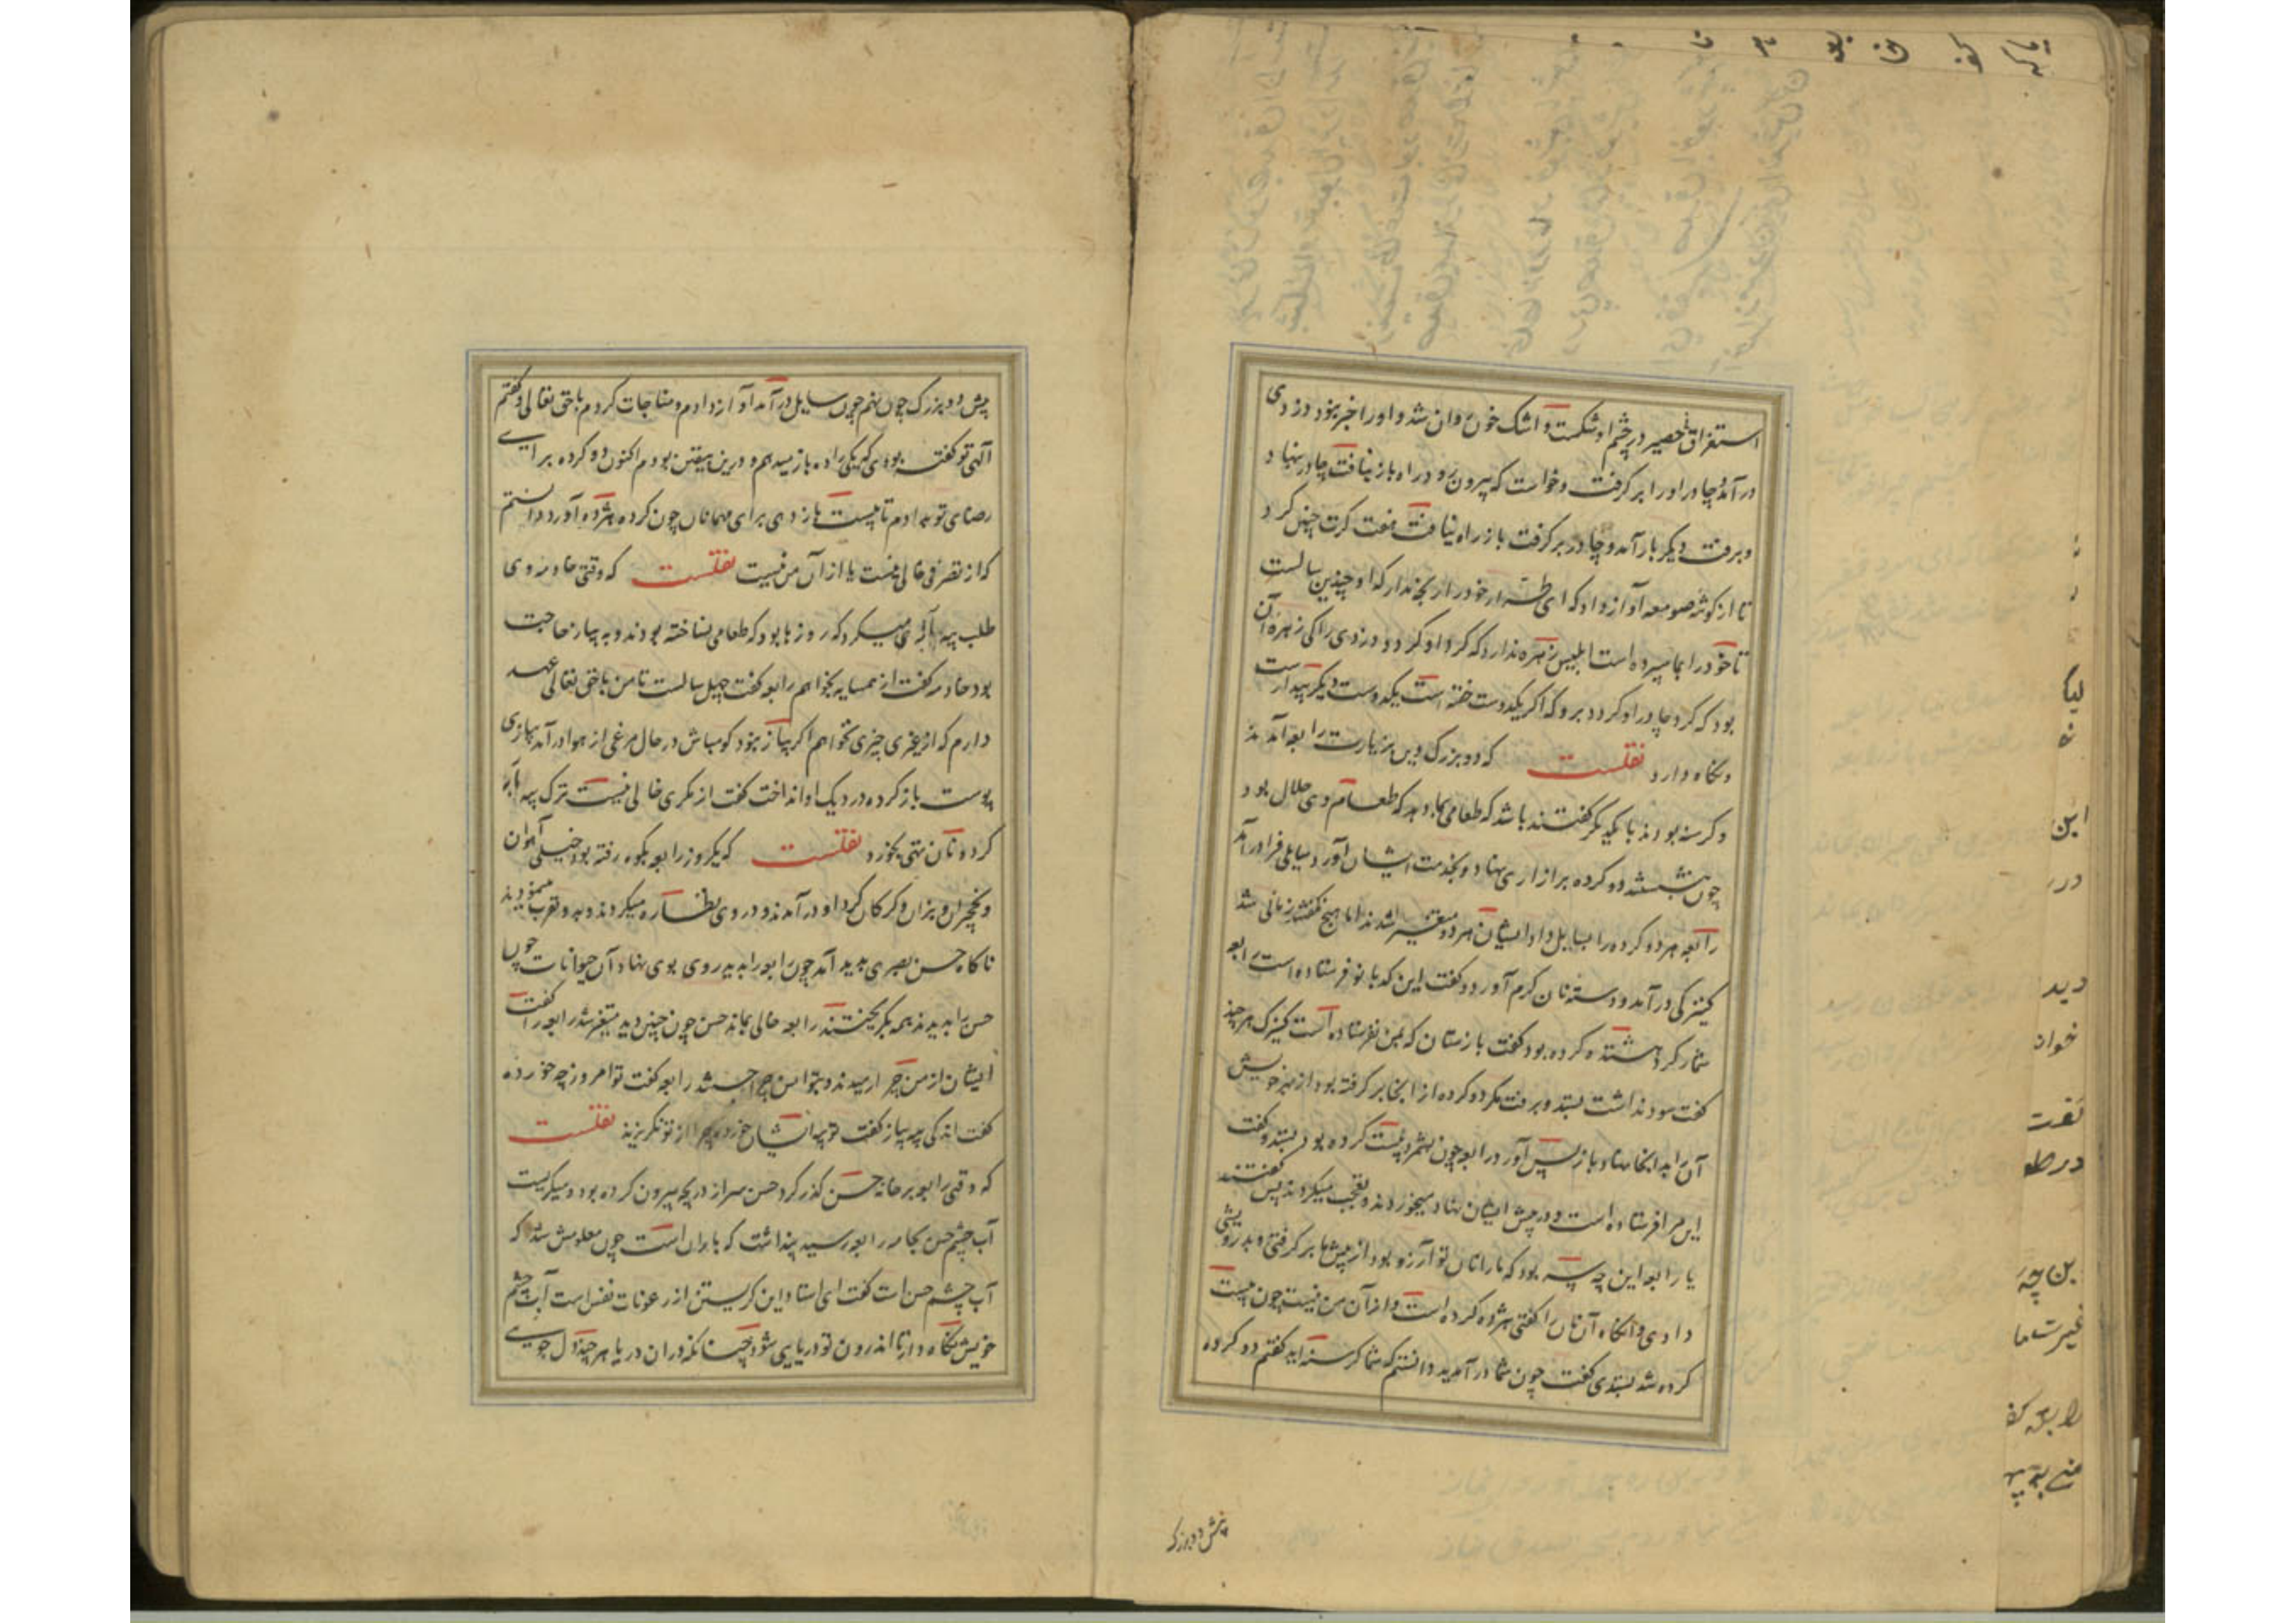 استغراق حصیر در چشم او شکست و اشک خون روان شد و او را خبر نبود دزدی
درآمد و چادر او را برگرفت و خواست که بیرون رود راه باز نیافت چادر بنهاد
و برفت دیگر بار آمد و چادر برگرفت باز راه نیافت هفت کرت چنین کرد
تا از گوشه صومعه آواز داد که ای طرار خود را رنجه مدار که او چندین سالست
تا خود را بما سپرده است ابلیس زهره ندارد که گرد او گردد و دزدی را کی زهره آن
بود که گرد چادر او گردد برو که اگر یکدوست خفته است یکدوست دیگر بیدارست
و نگاه دارد نقلست که دو بزرگ دین بزیارت رابعه آمدند
و گرسنه بودند با یکدیگر گفتند باشد که طعامی بما دهد که طعام وی حلال بود
چون بنشستند دو گرده بر ازاری نهاد و بخدمت ایشان آورد سایلی فرا درآمد
رابعه هر دو گرده را بسایل داد ایشان هر دو متغیر شدند اما هیچ نگفتند زمانی شد
کنیزکی درآمد و دسته نان گرم آورد و گفت این کدبانو فرستاده است رابعه
شمار کرد هشتده گرده بود گفت بازستان که بمن نفرستاده است کنیزک هر چند
گفت سود نداشت بستد و برفت مگر دو گرده از آنجا برگرفته بود از بهر خویش
آن را بدانجا نهاد و باز پس آورد رابعه چون بشمرد بیست گرده بود بستد و گفت
این مرا فرستاده است و در پیش ایشان نهاد میخوردند و تعجب میکردند پس گفتند
یا رابعه این چه سر بود که ما را نان تو آرزو بود از پیش ما برگرفتی و بدرویشی
دادی و آنگاه آن نان را گفتی هژده گرده است و از آن من نیست چون بیست
گرده شد بستدی گفت چون شما درآمدید دانستم که شما گرسنه اید گفتم دو گرده
پیش دو بزرک
پیش دو بزرگ چون نهم چون سایل درآمد آواز دادم و مناجات کردم با حق تعالی و گفتم
الهی تو گفته بودی که یکی را ده باز میدهم و درین بیقین بودم اکنون دو گرده برای
رضای تو بدادم تا بیست باز دهی برای مهمانان چون گرده هژده آورد دانستم
که از تصرفی خالی نیست یا از آن من نیست نقلست که وقتی خادمه وی
طلب پیه آبه ی میکرد که روزها بود که طعامی نساخته بودند و به پیاز حاجت
بود خادمه گفت از همسایه بخواهم رابعه گفت چهل سالست تا من با حق تعالی عهد
دارم که از غیری چیزی نخواهم اگر پیاز نبود گو مباش در حال مرغی از هوا درآمد پیازی
پوست باز کرده در دیگ او انداخت گفت از مکری خالی نیست ترک پیه آبه
کرد و نان تهی بخورد نقلست که یکروز رابعه بکوه رفته بود خیلی آهوان
و نخچیران و بزان و گرگان گرد او درآمدند و در وی نظاره میکردند و بدو تقرب مینمودند
ناگاه حسن بصری پدید آمد چون رابعه را بدید روی بوی نهاد آن حیوانات چون
حسن را بدیدند همه بگریختند رابعه خالی بماند حسن چون چنین دید متغیر شد رابعه را گفت
ایشان از من چرا رمیدند و بتو انس چرا جستند رابعه گفت تو امروز چه خورده
گفت اندکی پیه پیاز گفت تو پیه ایشان خورده چرا از تو نگریزند نقلست
که وقتی رابعه بر خانه حسن گذر کرد حسن سر از دریچه بیرون کرده بود و میگریست
آب چشم حسن بجامه رابعه رسید پنداشت که بارانست چون معلومش شد که
آب چشم حسن است گفت ای استاد این گریستن از رعونات نفس است آب چشم
خویش نگاه دار تا اندرون تو دریایی شود چنانکه در آن دریا هر چند دل جویی
لیا
این
درر
دید
خواند
غیرت ما